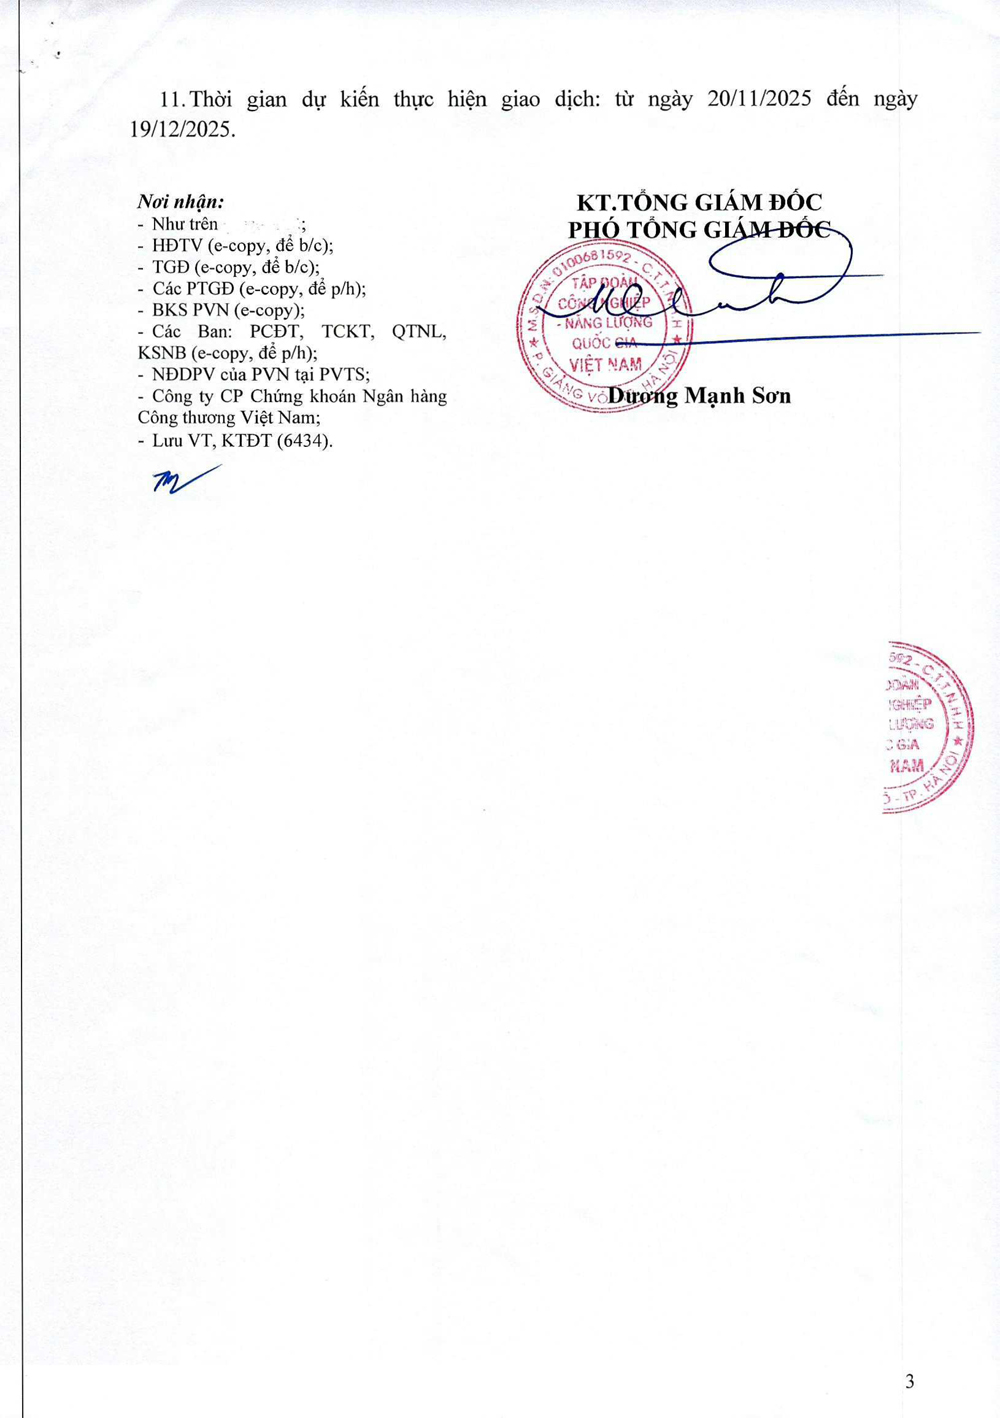 11. Thời gian dự kiến thực hiện giao dịch: từ ngày 20/11/2025 đến ngày
19/12/2025.
Nơi nhận:
- Như trên ;
- HĐTV (e-copy, để b/c);
- TGĐ (e-copy, để b/c);
- Các PTGĐ (e-copy, để p/h);
- BKS PVN (e-copy);
- Các Ban: PCĐT, TCKT, QTNL,
KSNB (e-copy, để p/h);
- NĐDPV của PVN tại PVTS;
- Công ty CP Chứng khoán Ngân hàng
Công thương Việt Nam;
- Lưu VT, KTĐT (6434).
KT.TỔNG GIÁM ĐỐC
PHÓ TỔNG GIÁM ĐỐC
M.S.D.N: 0100681592 - C.T.T.N.H.H
TẬP ĐOÀN
CÔNG NGHIỆP
- NĂNG LƯỢNG
QUỐC GIA
VIỆT NAM
P. GIẢNG VÕ - TP. HÀ NỘI
Dương Mạnh Sơn
592 - C.T.T.N.H.H
ĐOÀN
NGHIỆP
LƯỢNG
C GIA
NAM
Õ - TP. HÀ NỘI
3